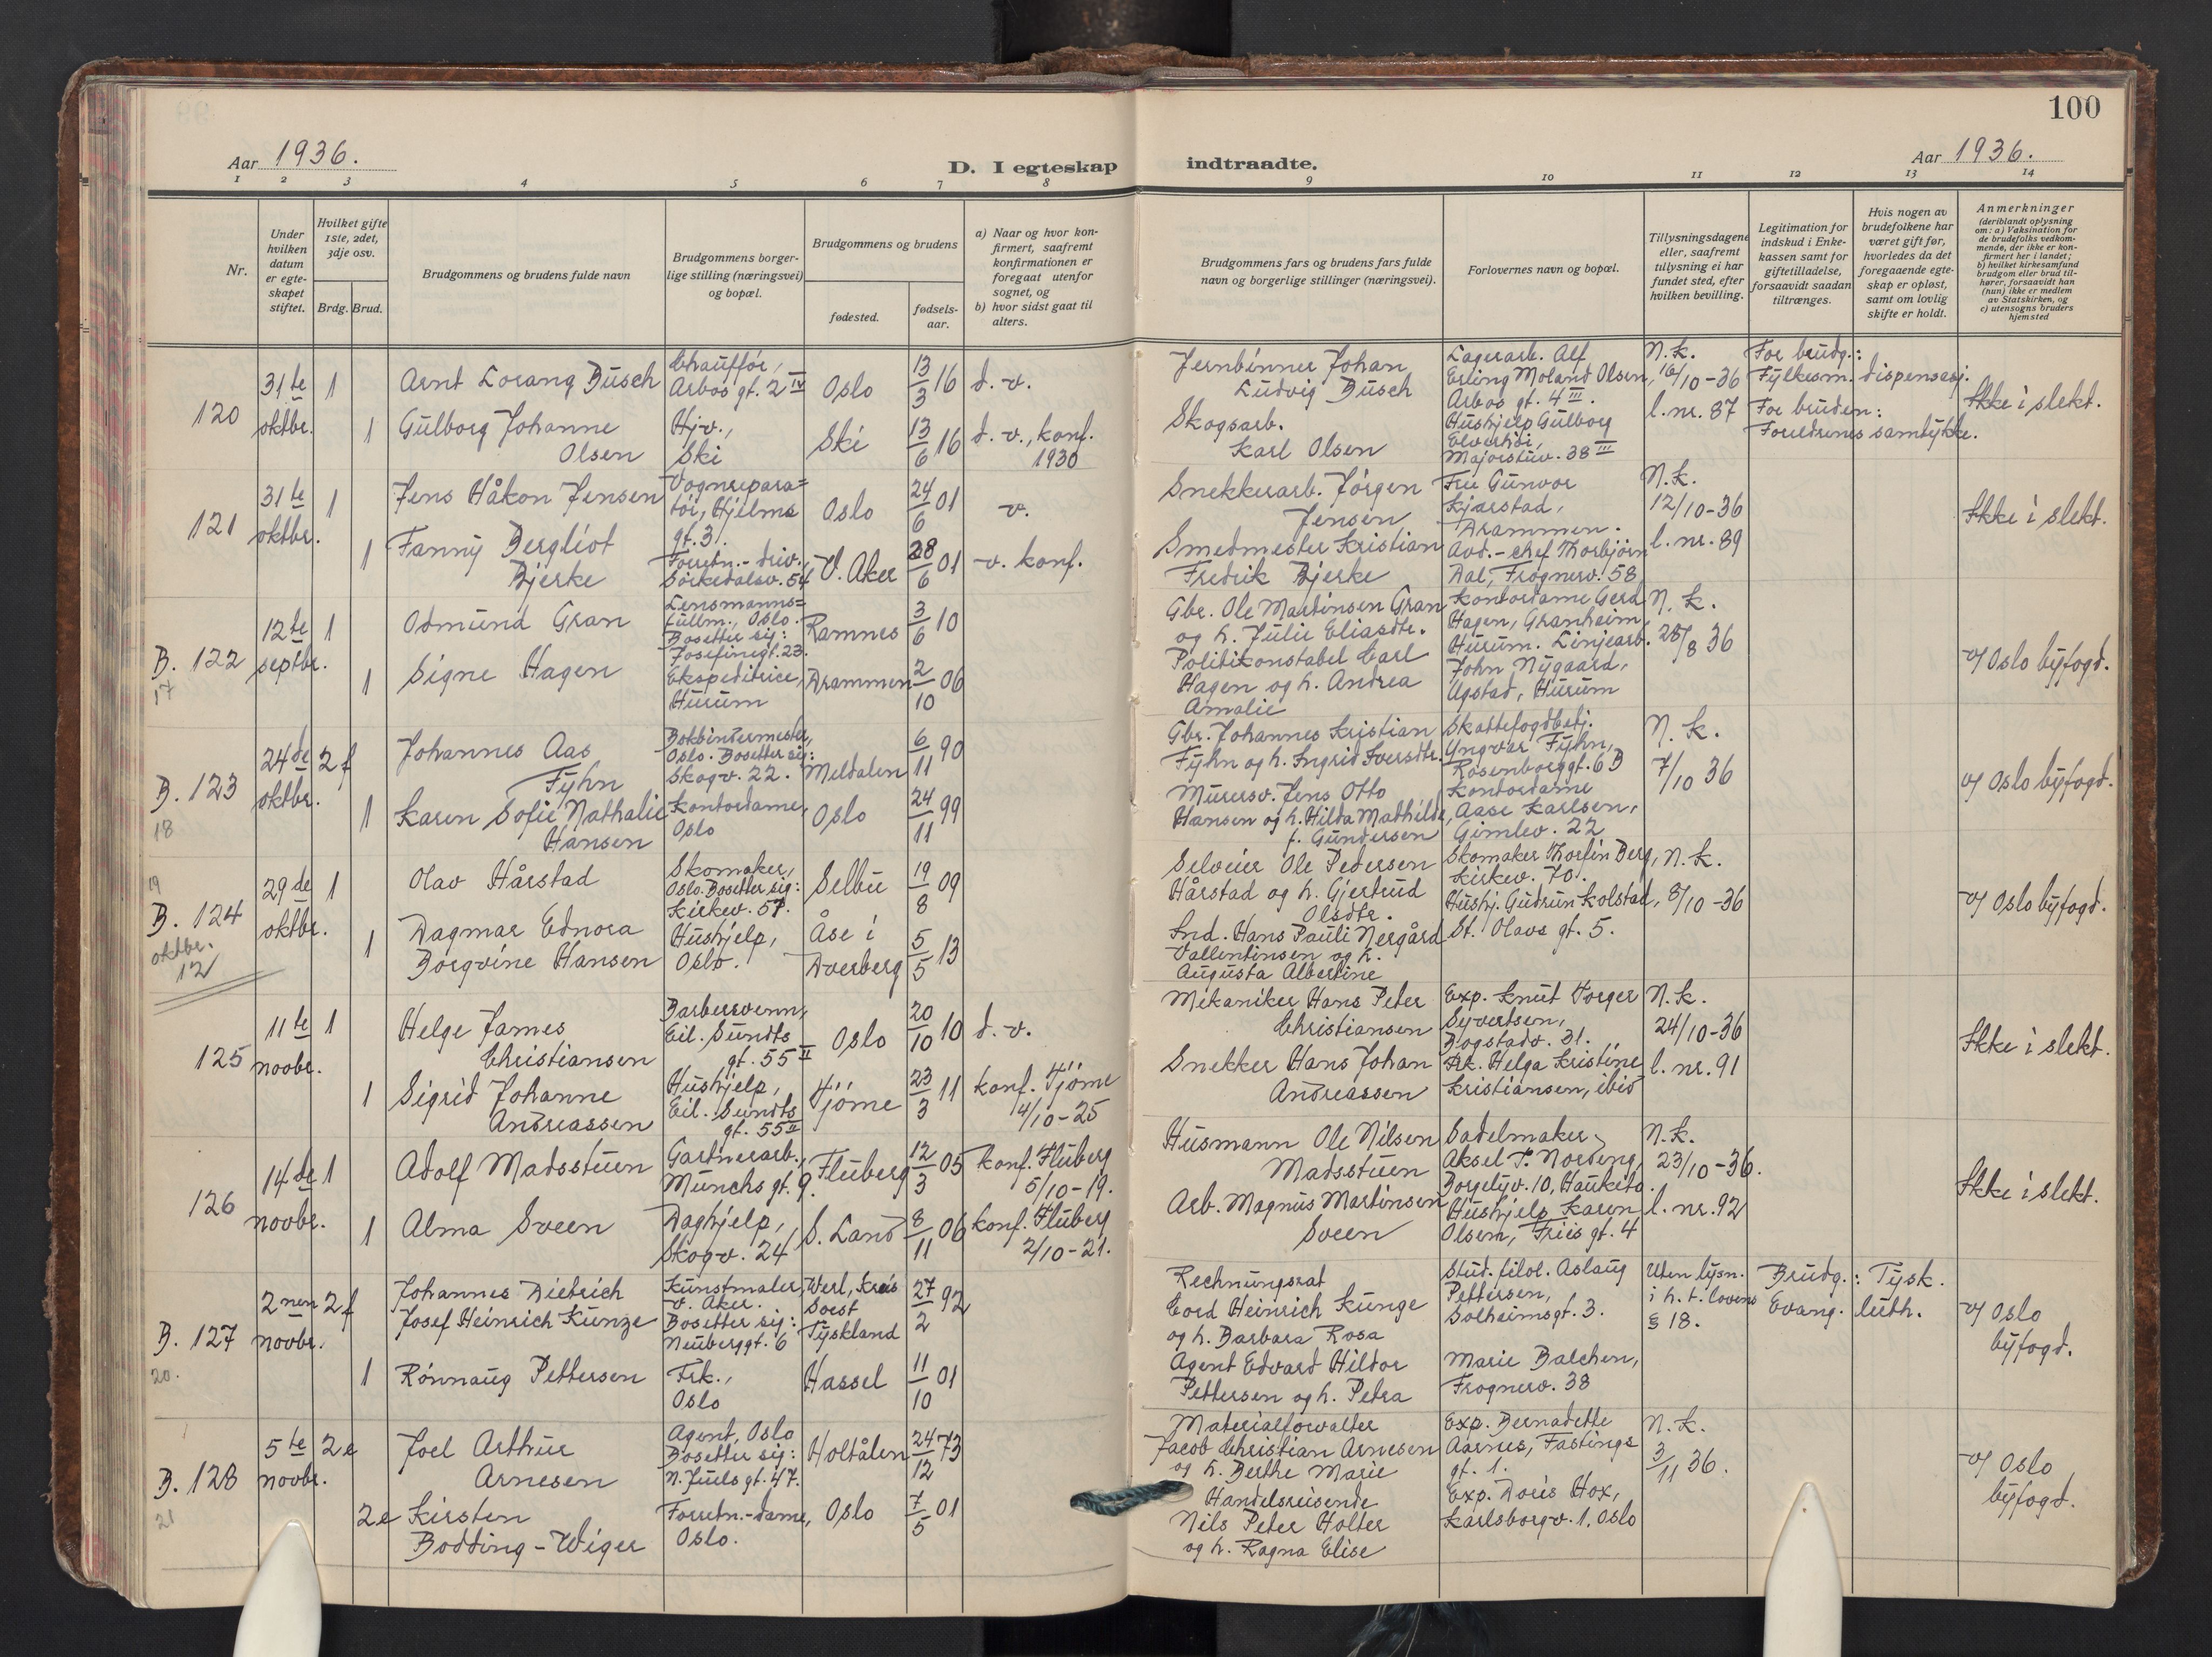 100
Aar 1936.
D. I egteskap indtraadte.
Aar 1936.
1 2 3 4 5 6 7 8 9 10 11 12 13 14
Nr.
Under hvilken datum er egte-skapet stiftet.
Hvilket gifte 1ste, 2det, 3dje osv.
Brdg. Brud.
Brudgommens og brudens fulde navn
Brudgommens borger-lige stilling (næringsvei) og bopæl.
Brudgommens og brudens
fødested.
fødsels-aar.
a) Naar og hvor kon-firmert, saafremt konfirmationen er foregaat utenfor sognet, og
b) hvor sidst gaat til alters.
Brudgommens fars og brudens fars fulde navn og borgerlige stillinger (næringsvei).
Forlovernes navn og bopæl.
Tillysningsdagene eller, saafremt tillysning ei har fundet sted, efter hvilken bevilling.
Legitimation for indskud i Enke-kassen samt for giftetilladelse, forsaavidt saadan tiltrænges.
Hvis nogen av brudefolkene har været gift før, hvorledes da det foregaaende egte-skap er opløst, samt om lovlig skifte er holdt.
Anmerkninger
(deriblandt oplysning om: a) Vaksination for de brudefolks vedkom-mende, der ikke er kon-firmert her i landet; b) hvilket kirkesamfund brudgom eller brud til-hører, forsaavidt han (hun) ikke er medlem av Statskirken, og c) utensogns bruders hjemsted
120
31te oktbr.
1
Arnt Lorang Busch
Chauffør, Arbos gt. 2 IV
Oslo
13/3 16
d. v.
Jernbinner Johan Ludvig Busch
Lagerarb. Alf Erling Moland Olsen, Arbos gt. 4 III.
N.k. 16/10-36 l.nr. 87
For brudg.: Fylkesm. dispensasj.
Ikke i slekt.
1
Gulborg Johanne Olsen
Hjv., Ski
Ski
13/6 16
d. v., konf. 1930
Skogsarb. Karl Olsen
Hushjelp Gulborg Elverhøi, Majorstuv. 38 III
For bruden: Foreldrenes samtykke.
121
31te oktbr.
1
Jens Håkon Jensen
Vognrepara=tør, Hjelms gt. 3.
Oslo
24/6 01
v.
Snekkerarb. Jørgen Jensen
Fru Gunvor Kjærstad, Drammen.
N.k. 12/10-36 l.nr. 89
Ikke i slekt.
1
Fanny Bergliot Bjerke
Forretn.-driv., Sørkedalsv. 54
V. Aker
28/6 01
v. konf.
Smedmester Kristian Fredrik Bjerke
Avd.-chef Thorbjørn Dal, Frognerv. 58
B. 122
17
12te septbr.
1
Odmund Gran
Lensmanns=fullm., Oslo. Bosetter sig: Josefinegt. 23.
Ramnes
3/6 10
Gbr. Ole Martinsen Gran og h. Julie Eliasdtr.
Kontordame Gerd Hagen, Granheim, Hurum.
N.k. 28/8 36
v/ Oslo byfogd.
1
Signe Hagen
Ekspeditrice, Hurum
Drammen
2/10 06
Politikonstabel Carl Hagen og h. Andrea Amalie
Linjearb. John Nygaard, Ugstad, Hurum
B. 123
18
24de oktbr.
2 f
Johannes Aas Fyhn
Bokbindermester, Oslo. Bosetter sig: Skogv. 22.
Meldalen
6/11 90
Gbr. Johannes Kristian Fyhn og h. Ingrid Iversdtr.
Skattefogdbetj. Yngvar Fyhn, Rosenborggt. 6 B
N.k. 7/10 36
v/ Oslo byfogd.
1
Karen Sofie Nathalie Hansen
Kontordame, Oslo
Oslo
24/11 99
Murersv. Jens Otto Hansen og h. Hilda Mathilde, f. Gundersen
Kontordame Aase Karlsen, Gimlev. 22
19
B. 124
oktbr. 12
29de oktbr.
1
Olav Hårstad
Skomaker, Oslo. Bosetter sig: Kirkev. 57.
Selbu
19/8 09
Selveier Ole Pedersen Hårstad og h. Gjertrud Olsdtr.
Skomaker Thorfin Berg, Kirkev. 70.
N.k. 8/10-36
v/ Oslo byfogd.
1
Dagmar Ednora Borgvine Hansen
Hushjelp, Oslo.
Åse i Dverberg
5/5 13
Ind. Hans Pauli Nergård Vallentinsen og h. Augusta Albertine
Hushj. Gudrun Kolstad, St. Olavs gt. 5.
125
11te novbr.
1
Helge James Christiansen
Barbersvenn, Eil. Sundts gt. 55 II
Oslo
20/10 10
d. v.
Mekaniker Hans Peter Christiansen
Exp. Knut Torger Syvertsen, Bogstadv. 31.
N.k. 24/10-36 l.nr. 91
Ikke i slekt.
1
Sigrid Johanne Andreassen
Hushjelp, Eil. Sundts gt. 55 II
Tjøme
23/3 11
konf. Tjøme 4/10-25
Snekker Hans Johan Andreassen
Frk. Helga Kristine Kristiansen, ibid
126
14de novbr.
1
Adolf Madsstuen
Gartnerarb., Munchs gt. 9.
Fluberg
12/3 05
konf. Fluberg 5/10-19.
Husmann Ole Nilsen Madsstuen
Sadelmaker Aksel T. Nordeng, Borgelyv. 10, Hauketo.
N.k. 23/10-36. l.nr. 92
Ikke i slekt.
1
Alma Sveen
Daghjelp, Skogv. 24
S. Land
8/11 06
konf. Fluberg 2/10-21.
Arb. Magnus Martinsen Sveen
Hushjelp Karen Olsen, Friis gt. 4
B. 127
20.
2nen novbr.
2 f
Johannes Dietrich Josef Heinrich Kunze
Kunstmaler, V. Aker. Bosetter sig: Neuberggt. 6
Werl, Kreis Soest Tyskland
27/2 92
Rechnungsrat Cord Heinrich Kunze og h. Barbara Rosa
Stud. filol. Aslaug Pettersen, Solheimsgt. 3.
Uten lysn. i h. t. lovens § 18.
Brudg.: Tysk. Evang. luth.
v/ Oslo byfogd.
1
Rønnaug Pettersen
Frk., Oslo
Hassel
11/10 01
Agent Edvard Hildor Pettersen og h. Petra
Marie Balchen, Frognerv. 38
B. 128
21
5te novbr.
2 e
Joel Arthur Arnesen
Agent, Oslo Bosetter sig: N. Juels gt. 47.
Holtålen
24/12 73
Materialforvalter Jacob Christian Arnesen og h. Berthe Marie
Exp. Bernadette Aarnes, Fastings gt. 1.
N.k. 3/11 36.
v/ Oslo byfogd.
2 e
Kirsten Bodding-Wiger
Forretn.-dame, Oslo.
Oslo
7/5 01
Handelsreisende Nils Peter Holter og h. Ragna Elise
Exp. Doris Hox, Karlsborgv. 1, Oslo